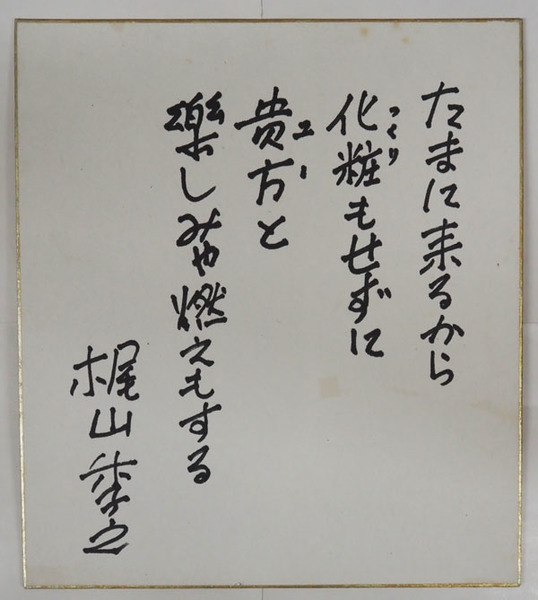 たまに来るから
化粧もせずに
つくり
貴方と
ユー
楽しみや燃えもする
梶山季之